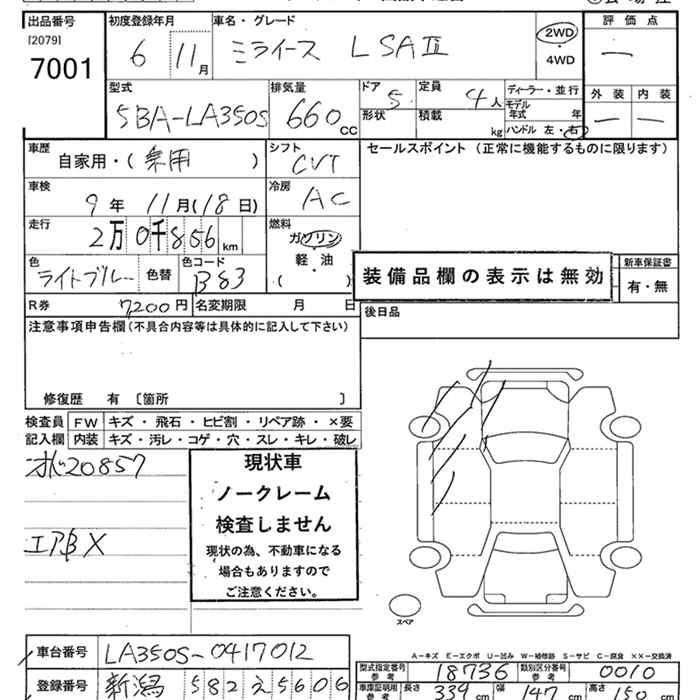 出品番号 初度登録年月 車名・グレード 評価点
[2079] 2WD
7001 6 11月 ミライース L SAⅢ ・ 4WD ー
型式 排気量 ドア 定員 ディーラー・並行 外装 内装
5BA-LA350S 660 CC 5 4人 モデル年式 年 ー ー
形状 積載 kg ハンドル 左・右
車歴 自家用・(乗用) シフト CVT セールスポイント(正常に機能するものに限ります)
車検 9年 11月(18日) 冷房 AC
走行 2万0千856km 燃料 ガソリン
軽・油
( )
色 ライトブルー 色替 色コード B83 装備品欄の表示は無効 新車保証書
有・無
R券 7,200円 名変期限 月 日 後日品
注意事項申告欄(不具合内容等は具体的に記入して下さい)
修復歴 有 〔箇所 〕
検査員 FW キズ・飛石・ヒビ割・リペア跡・×要
記入欄 内装 キズ・汚レ・コゲ・穴・スレ・キレ・破レ
20857
現状車
ノークレーム
検査しません
エアB X
現状の為、不動車になる
場合もありますので
ご注意ください。
スペア
A-キズ E-エクボ U-凹み W-補修跡 S-サビ C-腐食 ××-交換済
車台番号 LA350S-0417012 型式指定番号 参考 18736 類別区分番号 参考 0010
登録番号 新潟 582え5606 車庫証明用 参考 長さ 339cm 幅 147cm 高さ 150cm